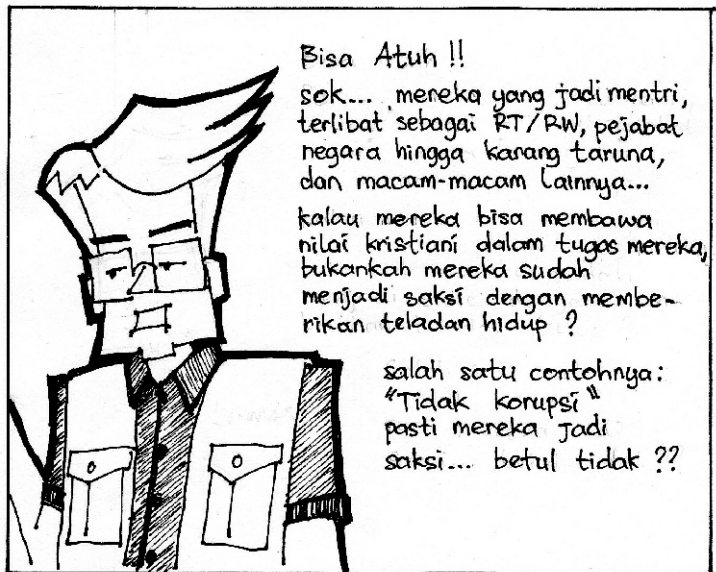 Bisa Atuh !!
sok... mereka yang jadi mentri,
terlibat sebagai RT/RW, pejabat
negara hingga karang taruna,
dan macam-macam lainnya...
kalau mereka bisa membawa
nilai kristiani dalam tugas mereka,
bukankah mereka sudah
menjadi saksi dengan membe-
rikan teladan hidup ?
salah satu contohnya:
"Tidak korupsi"
pasti mereka jadi
saksi... betul tidak ??